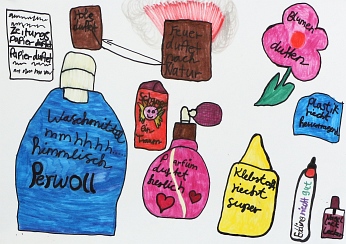 Zeitungs
Papierduftet
Papierduftet
Holz
duftet
Feuer
duftet
nach
Natur
Blumen
duften
Waschmittel
mmhhhh
himmlisch
Perwoll
Parfüm
duftet
herrlich
Klebstoff
riecht
super
Plastik
riecht
Edding riecht gut